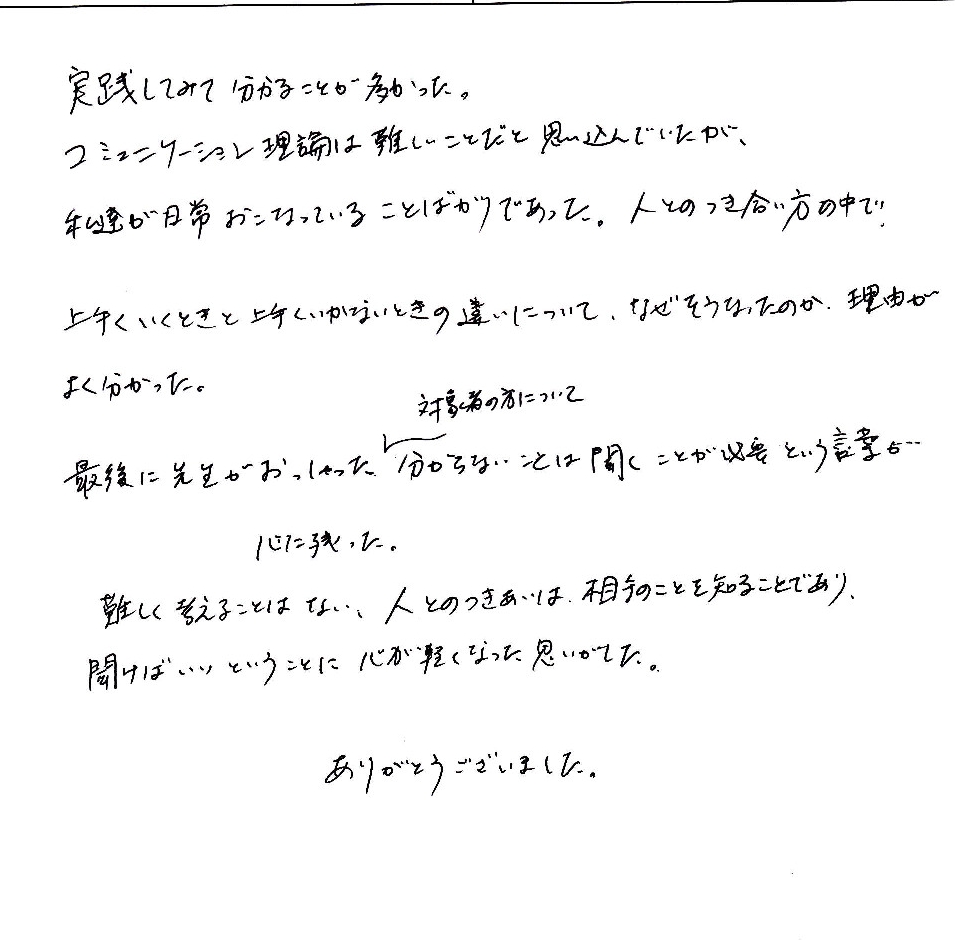 実践してみて分かることが多かった。
コミュニケーション理論は難しいことだと思い込んでいたが、
私達が日常おこなっていることばかりであった。人とのつき合い方の中で
上手くいくときと上手くいかないときの違いについて、なぜそうなったのか、理由が
よく分かった。
対象者の方について
最後に先生がおっしゃった、分からないことは聞くことが必要という言葉が
心に残った。
難しく考えることはない、人とのつきあいは、相手のことを知ることであり、
聞けばいいということに心が軽くなった思いがした。
ありがとうございました。